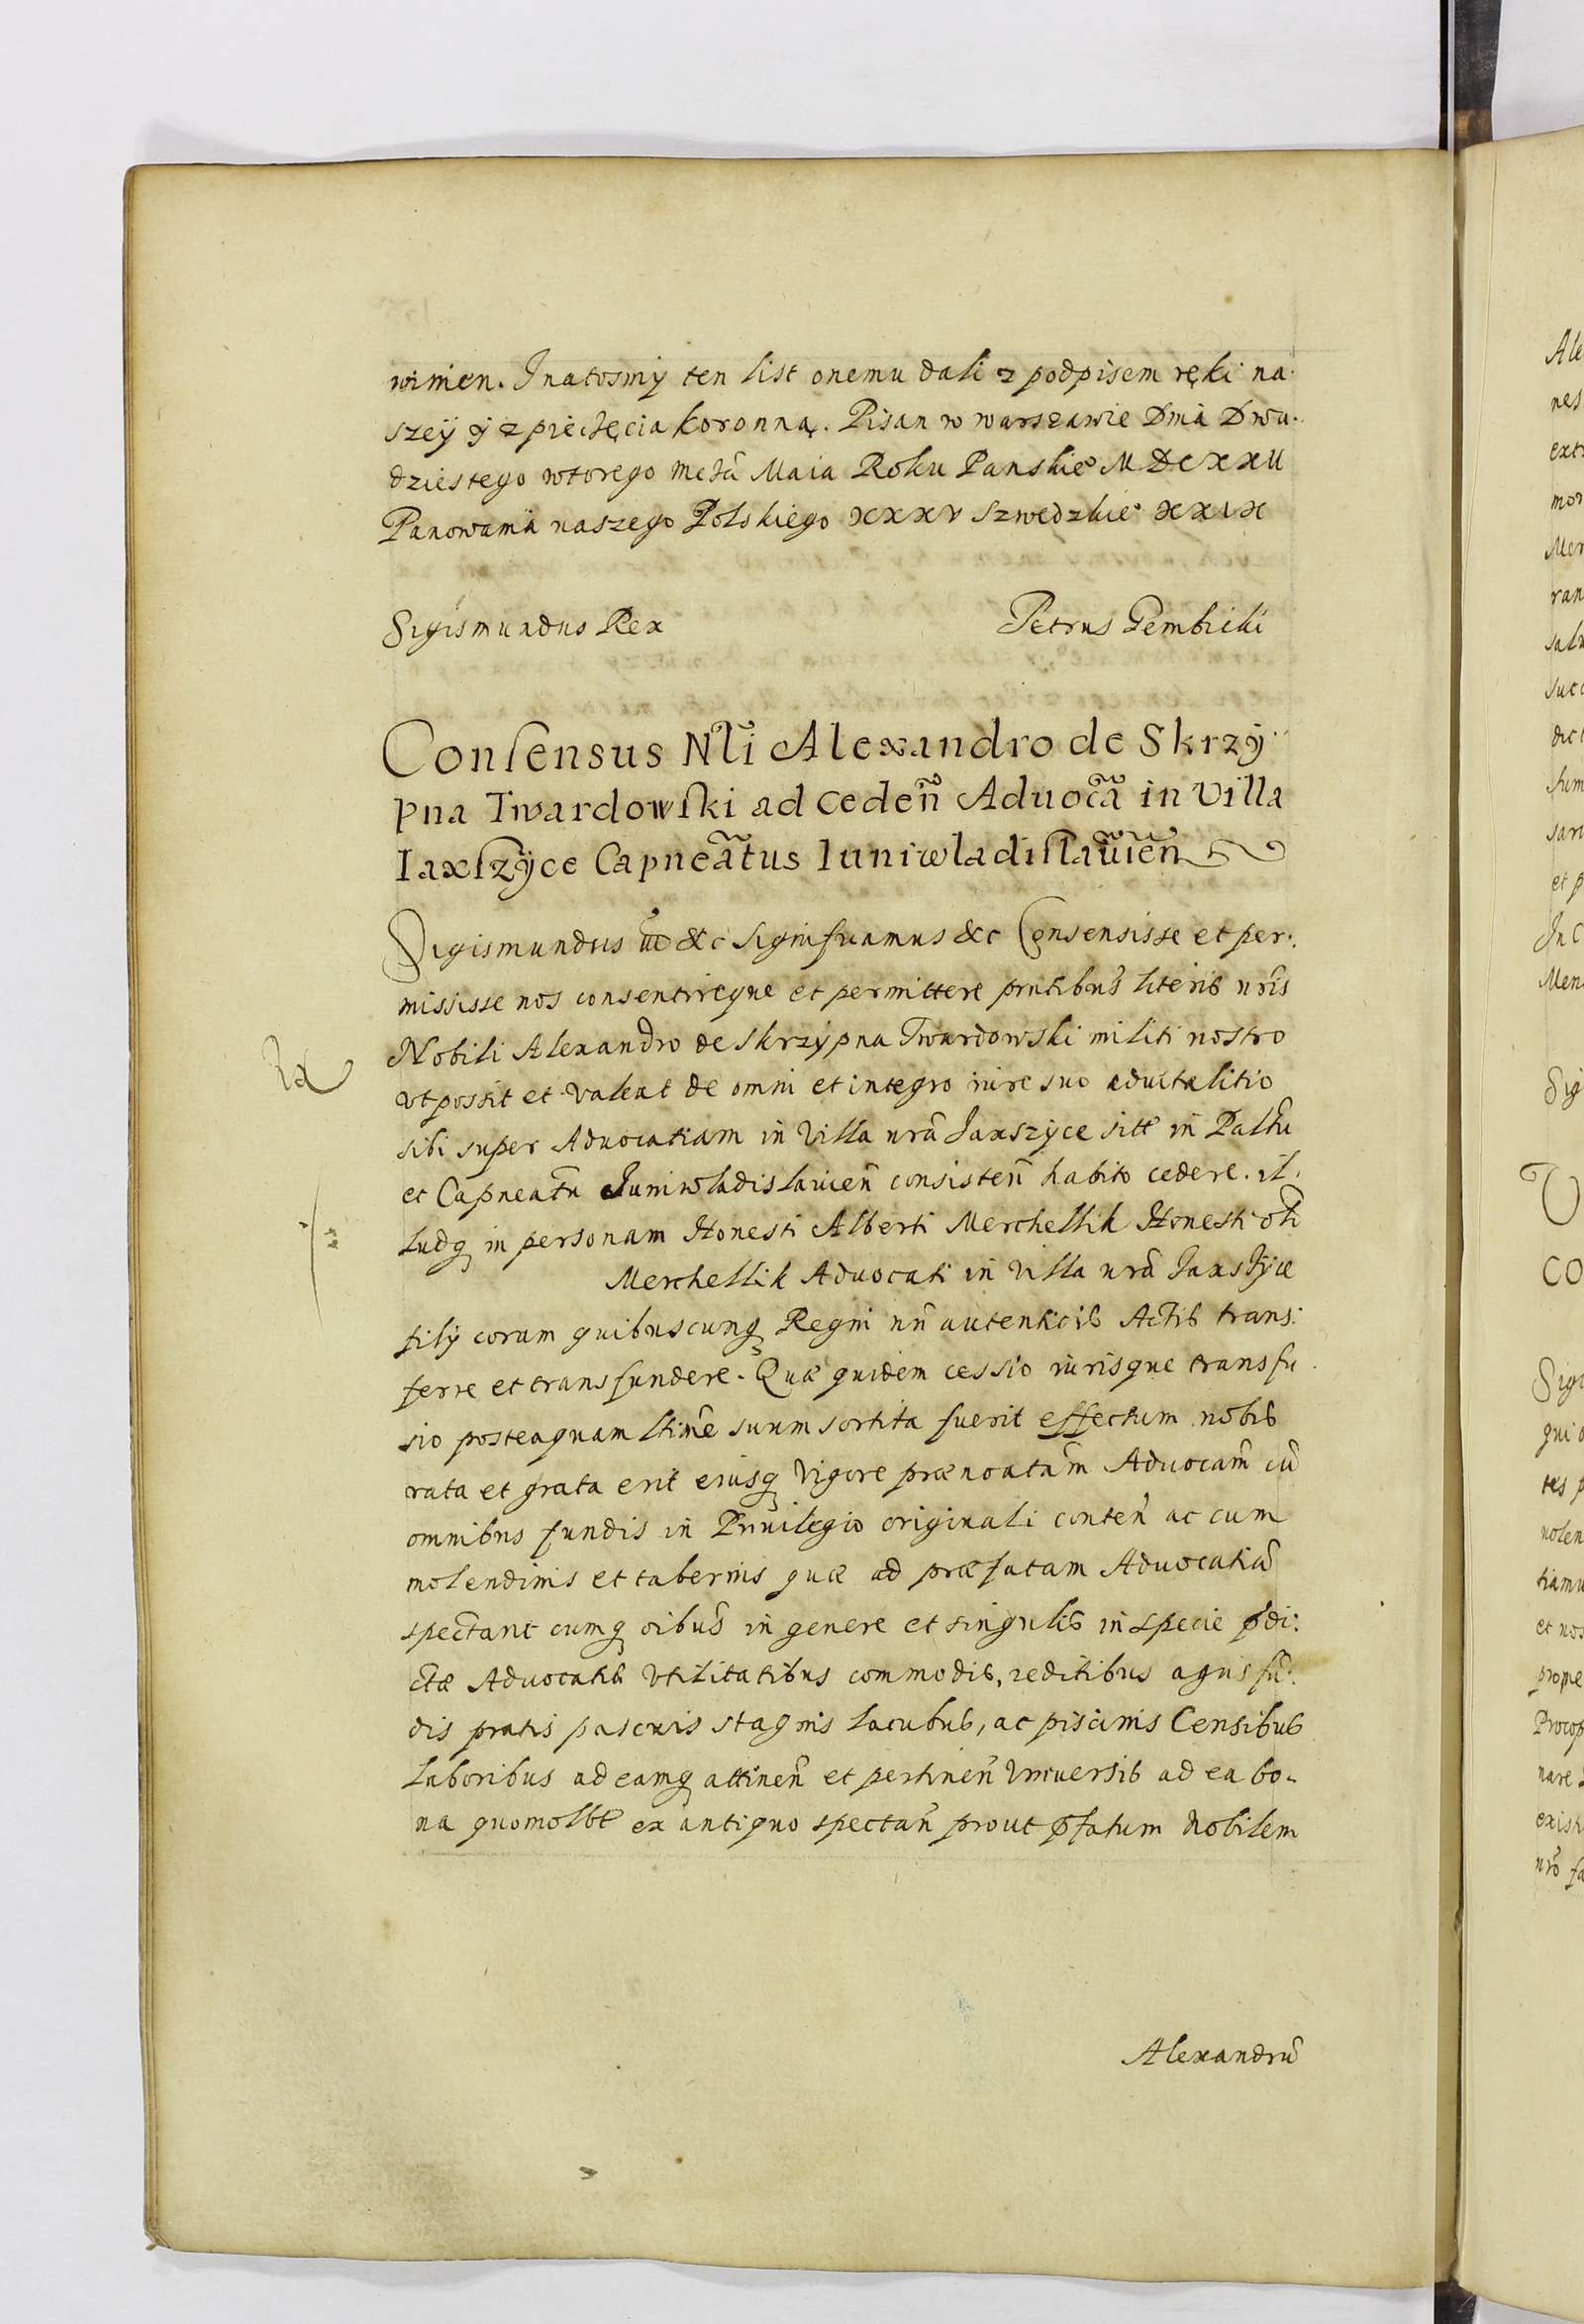 winien. Inatosmy ten list onemu dali z podpisem ręki na-
szey y z pieczęcia koronną. Pisan w warszawie Dnia Dwu-
dziestego wtorego mcza Maia Roku Panskie° MDCXXII
Panowania naszego Polskiego XXXV Szwedzkie° XXIX
Sigismundus Rex Petrus Gembicki
Consensus Nłi Alexandro de Skrzy
pna Twardowski ad cedeñ Aduocã in Villa
Iaxszyce Capneãtus Iuniwladislauieñ
Sigismundus &c significamus &c Consensisse et per-
misisse nos consentireque et permittere pñtibus literis nr̃is
Nobili Alexandro de Skrzypna Twardowski militi nostro
Rx
vt possit et valeat de omni et integro iure suo aduitalitio
sibi super Aduocatiam in Villa nrã Jaxszyce sitt in Paltũ
et Capneatũ Juniwladislauieñ consisteñ habito cedere. il-
ludq in personam Honesti Alberti Merchellik Honesti oli
Merchellik Aduocati in Villa nrã Jaxszyce
filij coram quibuscunq Regni nr̃i autenticis Actis trans-
ferre et transfundere. Quæ quidem cessio iurisque transfu-
sio posteaquam ltimẽ suum sortita fuerit effectum nobis
rata et grata erit eiusq vigore prænoatãm Aduocam̃ cũ
omnibus fundis in Priuilegio originali conteñ ac cum
molendinis et tabernis quæ ad præfatam Aduocatiã
spectant cumq oibus in genere et singulis in specie p̃di-
ctæ Aduocatiæ vtilitatibus commodis, reditibus agris fũ-
dis pratis pascuis stagnis lacubus, ac piscinis Censibus
laboribus ad eamq attineñ et pertineñ vniuersis ad ea bo-
na quomolbt ex antiquo spectañ prout p̃fatum Nobilem
Alexandrũ